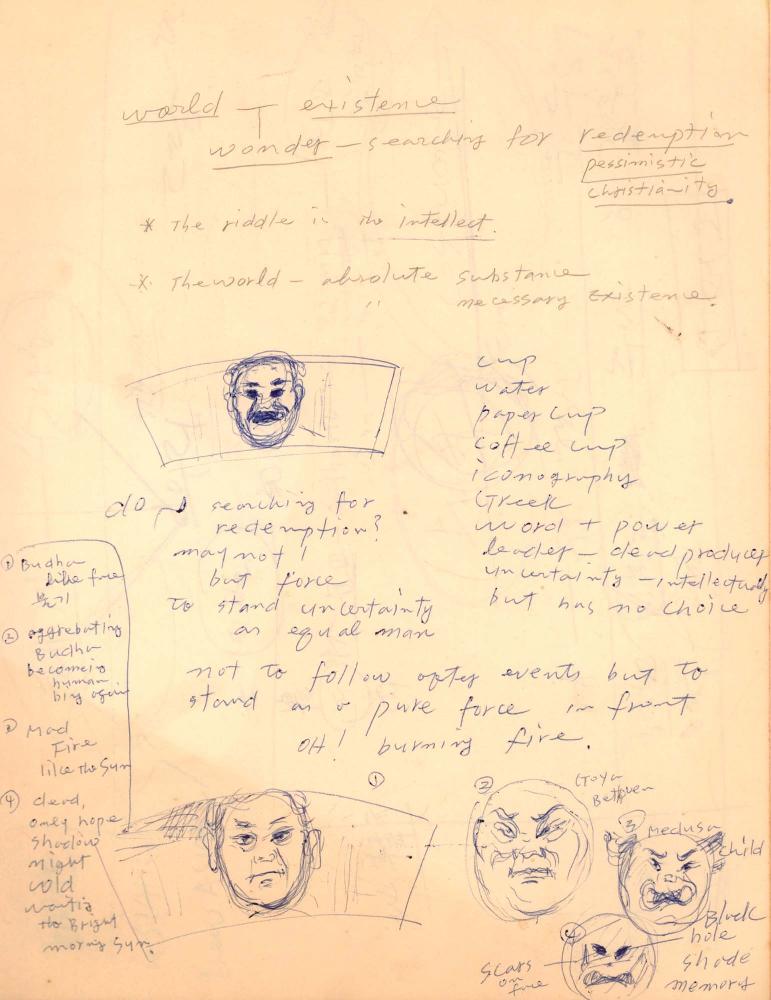 world existence
wonder - searching for redemption
pessimistic
christianity.
* The riddle is the intellect.
* The world - absolute substance
" necessary existence.
cup
water
paper cup
coffee cup
iconography
Greek
word + power
leader - dead producer
uncertainty - intellectually
but has no choice
do searching for
redemption?
may not!
but force
to stand uncertainty
as equal man
not to follow after events but to
stand as a pure force in front
OH! burning fire.
① Budha
like face
② aggrebating
Budha
becomein
human
big again
③ Mad
Fire
like the Sun
④ dead,
only hope
shadow
night
cold
waitin
the Bright
morny Sun.
①
②
Goya
3 Medusa
child
Black
hole
shade
memory
4
scars
on
face